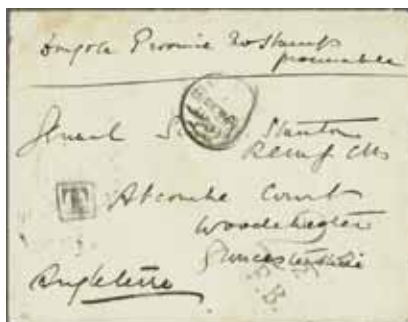 Dongola Province No Stamps
procurable
General Sir Stanton
T
Atcombe Court
Woodchester
Gloucestershire
Angleterre
F.B.